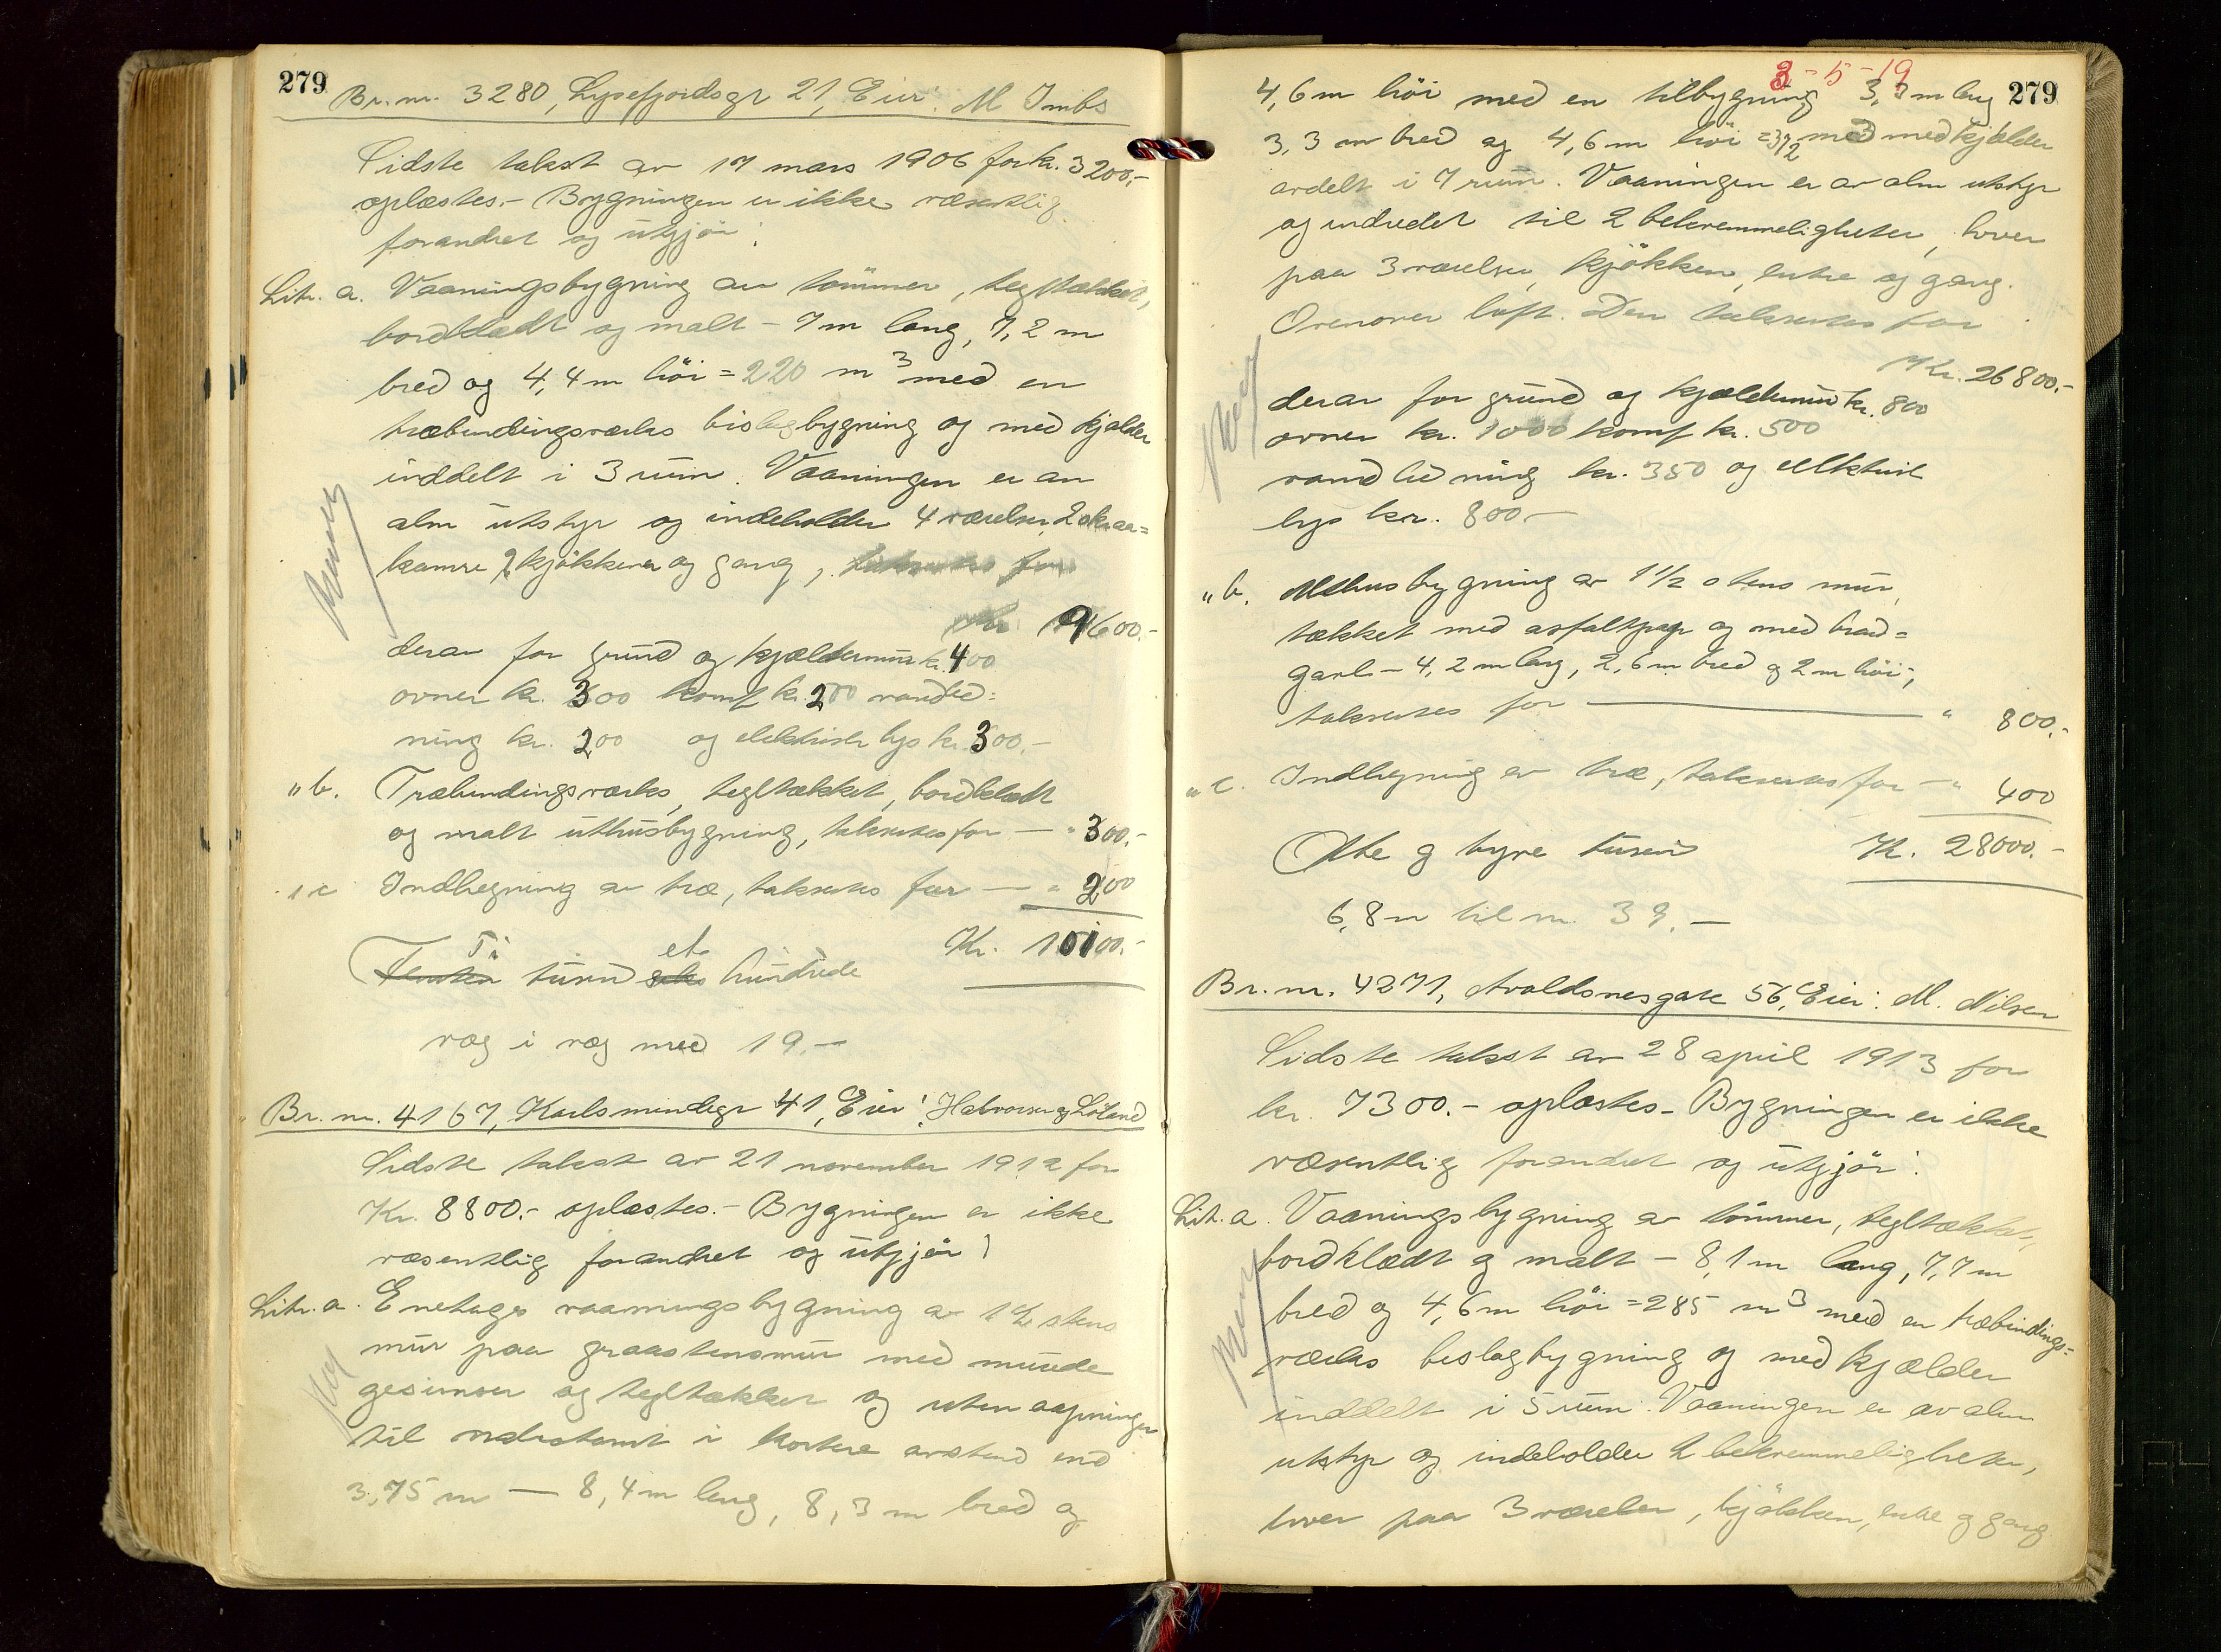 279
Br. nr. 3280, Lysefjordsgt 21, Eier: M Imbs
Sidste takst av 17 mars 1906 for kr. 3200,-
oplæstes.- Bygningen er ikke væsentlig
forandret og utgjör:
Litr. a. Vaaningsbygning av tömmer, tegltækket,
bordklædt og malt - 7m lang, 7,2 m
bred og 4,4m höi = 220 m3 med en
træbindingsverks bislagbygning og med kjælder
inddelt i 3 rum. Vaaningen er av
alm utstyr og indeholder 4 værelser, 2 skraa=
kamre 2 kjökkener og gang, takseres for
9600.-
derav for grund og kjældermur kr. 400
ovner kr. 300 komf kr. 200 vandled=
ning kr. 200 og elektrisk lys kr. 300.-
" b. Træbindingsverks, tegltækket, bordklædt
og malt uthusbygning, takseres for - " 300.-
" c Indhegning av træ, takseres for - " 200
Kr. 10100.-
Ti et
tusen seks hundrede
væg i væg med 19.-
Br. nr. 4167, Karlsmindegt 41, Eier: Halvorsen og Löland
Sidste takst av 21 november 1912 for
Kr. 8800.- oplæstes.- Bygningen er ikke
væsentlig forandret og utgjör:
Litr. a. Enetages vaaningsbygning av 1 1/2 stens
mur paa graastensmur med murede
gesimser og tegltækket og uten aapninger
til nabotomt i kortere avstand end
3,75 m - 8,4m lang, 8,3 m bred og
3-5-19
279
4,6m höi med en tilbygning 3,3m lang
3,3 m bred og 4,6 m höi = 372 m3 med kjælder
avdelt i 7 rum. Vaaningen er av alm utstyr
og indredet til 2 bekvemmeligheter, hver
paa 3 værelser, kjökken, entre og gang.
Ovenover loft. Den takseres for
Kr. 26800.-
derav for grund og kjældermur kr. 800
ovner kr. 1000 komf kr. 500
vandledning kr. 350 og elektrisk
lys kr. 800.-
" b. Uthusbygning av 1 1/2 stens mur,
tækket med asfaltpap og med brand=
gavl - 4,2 m lang, 2,6 m bred og 2 m höi;
takseres for " 800.-
" c. Indhegning av træ, takseres for - " 400
Otte og tyve tusen Kr. 28000.-
6,8m til nr. 39.-
Br. nr. 4271, Avaldsnesgate 56, Eier: M. Nilsen
Sidste takst av 28 april 1913 for
kr. 7300.- oplæstes - Bygningen er ikke
væsentlig forandret og utgjör:
Litr. a. Vaaningsbygning av tömmer, tegltækket,
bordklædt og malt - 8,1m lang, 7,7m
bred og 4,6m höi = 285 m3 med en træbindings=
verks bislagbygning og med kjælder
inddelt i 5 rum. Vaaningen er av alm
utstyr og indeholder 2 bekvemmeligheter,
hver paa 3 værelser, kjökken, entre og gang